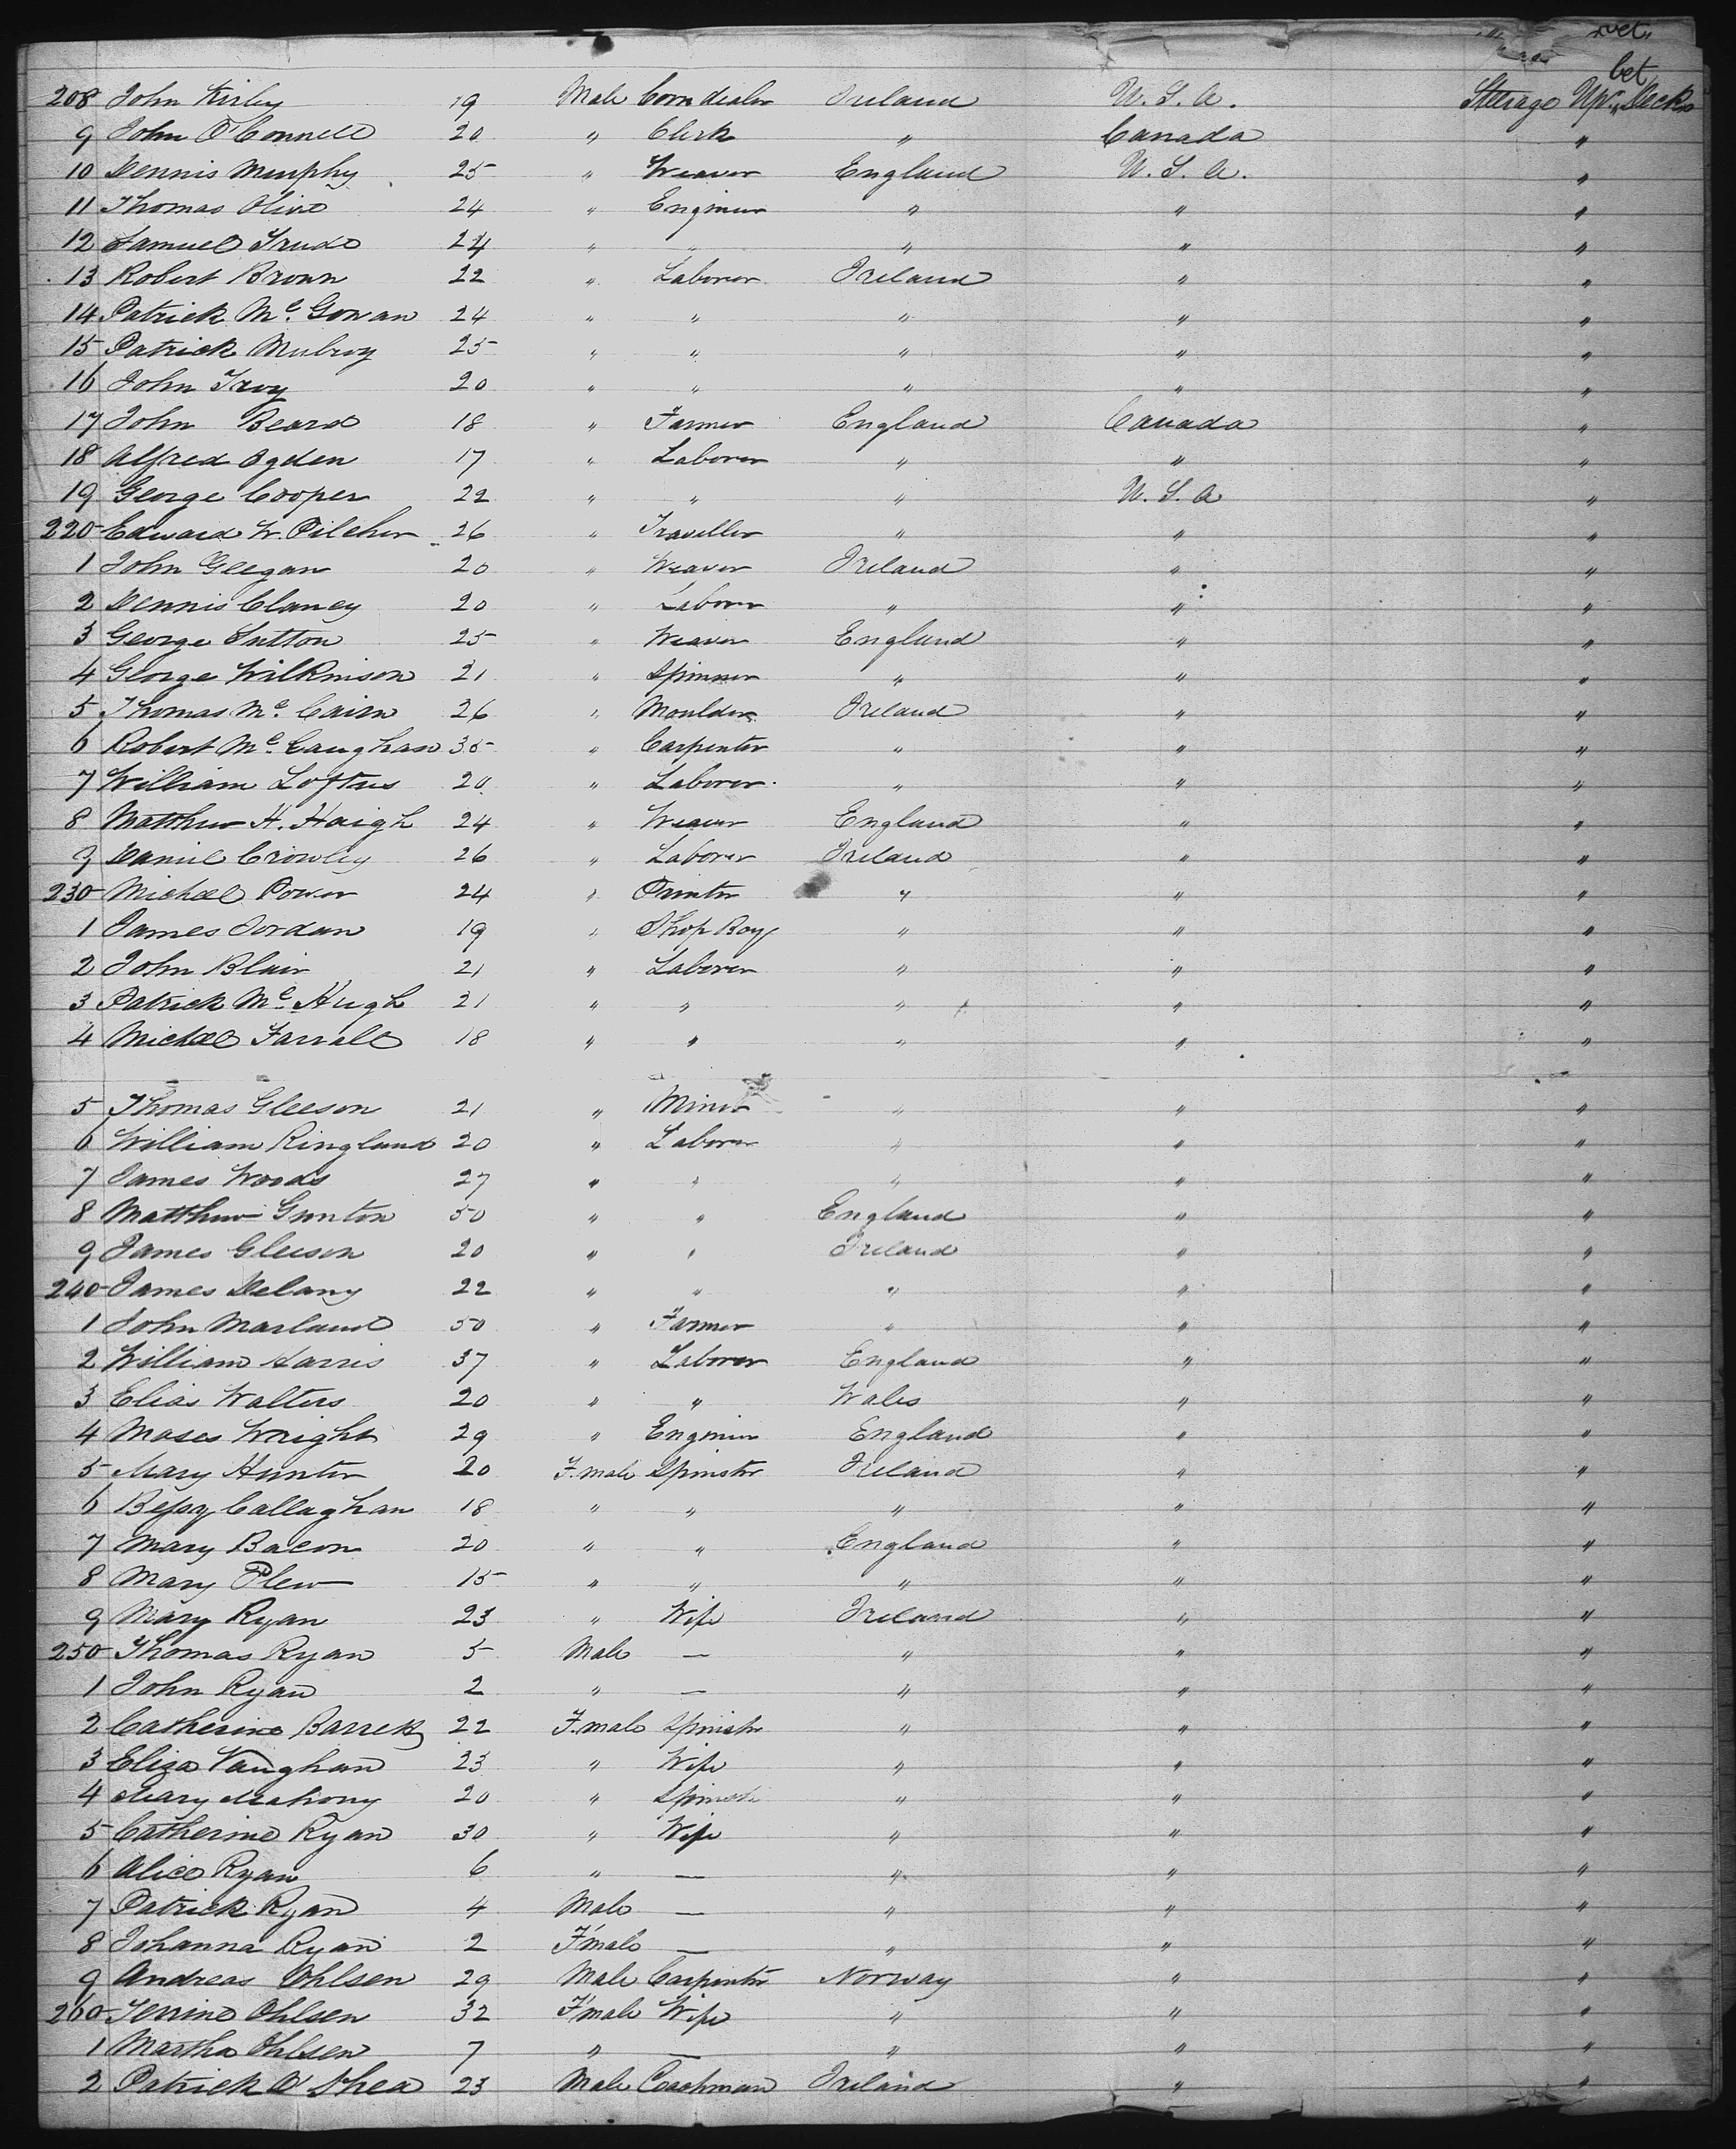 bet.
bet
208 John Kirby 19 Male Corn dealer Ireland U. S. A. Steerage Upr. Decks
9 John O'Connell 20 " Clerk " Canada "
10 Dennis Murphy 25 " Weaver England U. S. A. "
11 Thomas Olive 24 " Engineer " " "
12 Samuel Trude 24 " " " " "
13 Robert Brown 22 " Laborer Ireland " "
14 Patrick Mc. Gowan 24 " " " " "
15 Patrick Mulroy 25 " " " " "
16 John Troy 20 " " " " "
17 John Beard 18 " Farmer England Canada "
18 Alfred Ogden 17 " Laborer " " "
19 George Cooper 22 " " " U. S. A "
220 Edward W. Pilcher 26 " Traveller " " "
1 John Geegan 20 " Weaver Ireland " "
2 Dennis Clancy 20 " Laborer " " "
3 George Sutton 25 " Weaver England " "
4 George Wilkinson 21 " Spinner " " "
5 Thomas Mc. Cairn 26 " Moulder Ireland " "
6 Robert Mc. Caughan 35 " Carpenter " " "
7 William Loftus 20 " Laborer " " "
8 Matthew H. Haigh 24 " Weaver England " "
9 Daniel Crowley 26 " Laborer Ireland " "
230 Michael Power 24 " Printer " " "
1 James Jordan 19 " Shop Boy " " "
2 John Blair 21 " Laborer " " "
3 Patrick Mc. Hugh 21 " " " " "
4 Michael Farrall 18 " " " " "
5 Thomas Gleeson 21 " Miner " " "
6 William Ringland 20 " Laborer " " "
7 James Woods 27 " " " " "
8 Matthew Gunton 50 " " England " "
9 James Gleeson 20 " " Ireland " "
240 James Delany 22 " " " " "
1 John Marland 50 " Farmer " " "
2 William Harris 37 " Laborer England " "
3 Elias Walters 20 " " Wales " "
4 Moses Wright 29 " Engineer England " "
5 Mary Hunter 20 F.male Spinster Ireland " "
6 Bessy Callaghan 18 " " " " "
7 Mary Bacon 20 " " England " "
8 Mary Plew 15 " " " " "
9 Mary Ryan 23 " Wife Ireland " "
250 Thomas Ryan 5 Male — " " "
1 John Ryan 2 " — " " "
2 Catherine Barrett 22 F.male Spinster " " "
3 Eliza Vaughan 23 " Wife " " "
4 Mary Mahony 20 " Spinster " " "
5 Catherine Ryan 30 " Wife " " "
6 Alice Ryan 6 " — " " "
7 Patrick Ryan 4 Male — " " "
8 Johanna Ryan 2 F'male — " " "
9 Andreas Ohlsen 29 Male Carpenter Norway " "
260 Terrine Ohlsen 32 F'male Wife " " "
1 Martha Ohlsen 7 " — " " "
2 Patrick O'Shea 23 Male Coachman Ireland " "